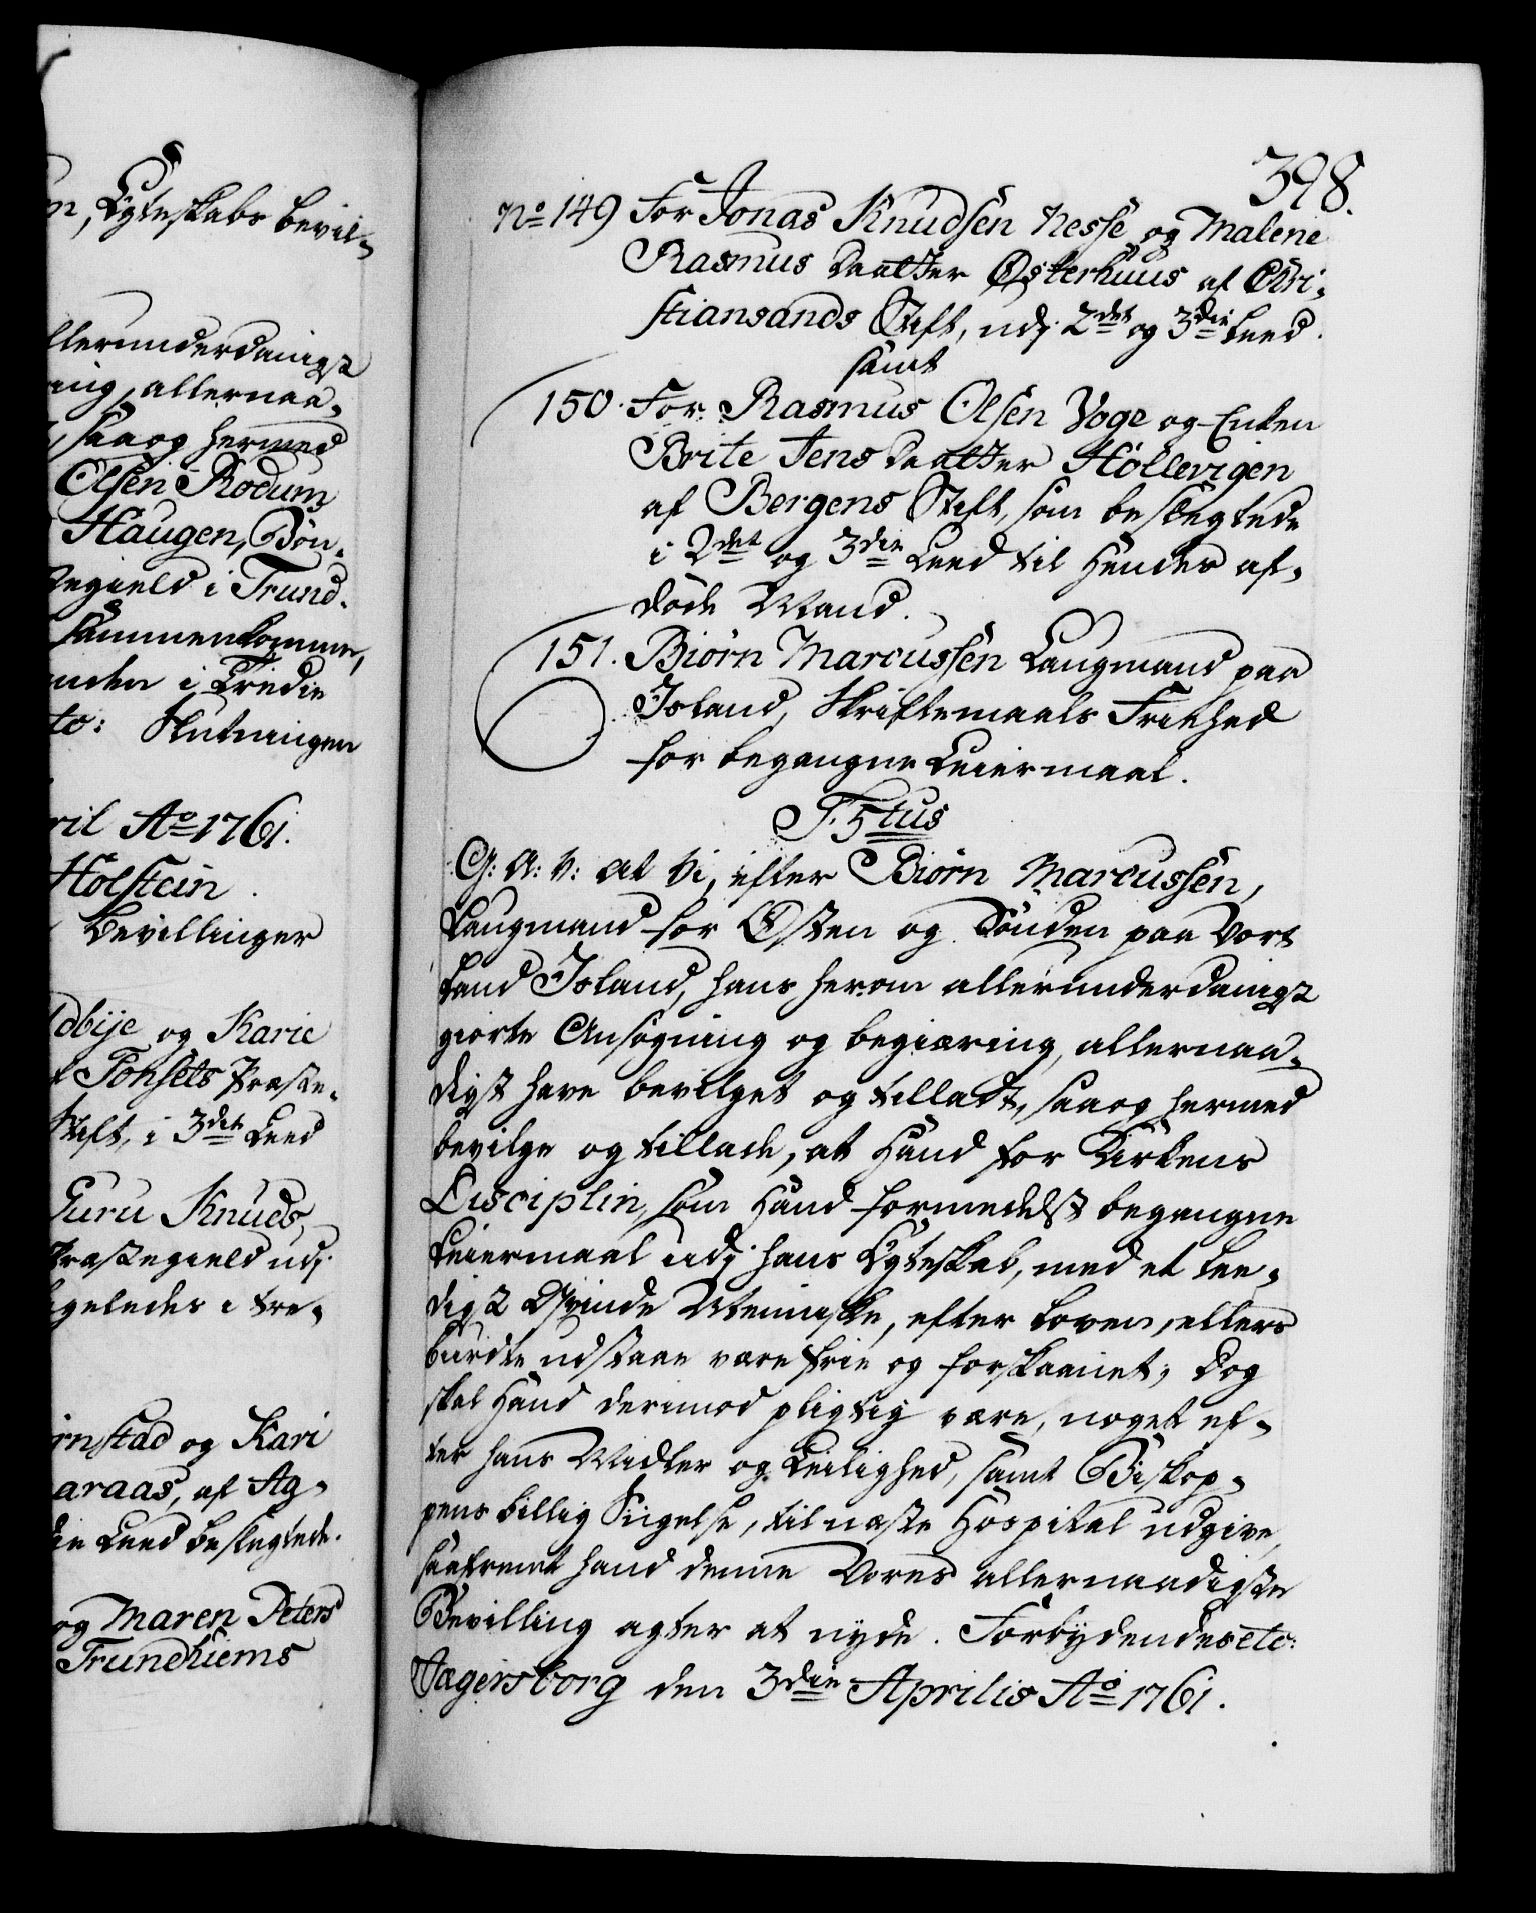 n, Egteskabs bevil-
llerunderdanigst
ing, allernaa-
, saa og hermed
Olsen Rodum
Haugen, Bön-
tegield i Trund-
sammenkomme,
anden i Tredie
to: Slutningen
ril Ao 1761.
Holstein.
Bevillinger
dbije og Karie
Tonsets Præste-
stift, i 3die Leed
Guru Knuds
Præstegield udj
ligeledes i tre-
rnstad og Kari
araas, af Ag-
die Leed beslegtede.
og Maren Peters
Trundhiems
398.
No 149 For Jonas Knudsen Nesse og Malene
Rasmus Daatter Østerhuus af Chri-
stiansands Stift, udj 2det og 3die Leed.
samt
150. For Rasmus Olsen Voge og Enken
Brite Jens Daatter Höllevigen
af Bergens Stift, som beslegtede
i 2det og 3die Leed til Hendes af-
döde Mand.
151. Biörn Marcussen Laugmand paa
Island, Skriftemaals Friehed
for begangne Leiermaal.
F. 5tus
G: A: V: at Vi, efter Biörn Marcussen,
Laugmand for Østen og Sönden paa Vort
Land Island, hans herom allerunderdanigst
giorte Ansögning og begiæring, allernaa-
digst have bevilget og tilladt, saa og hermed
bevilge og tillade, at Hand for Kirkens
Disciplin, som Hand formedelst begangne
Leiermaal udj hans Egteskab, med et lee-
digt Qvinde Menniske, efter Loven, ellers
burdte udstaae være frie og forskaanet; Dog
skal Hand derimod pligtig være, noget ef-
ter hans Midler og Leilighed, samt Biskop-
pens billig Sigelse, til næste Hospital udgive,
saafremt hand denne Vores allernaadigste
Bevilling agter at nyde. Forbydendes etc:
Jægersborg den 3die Aprilis Ao 1761.